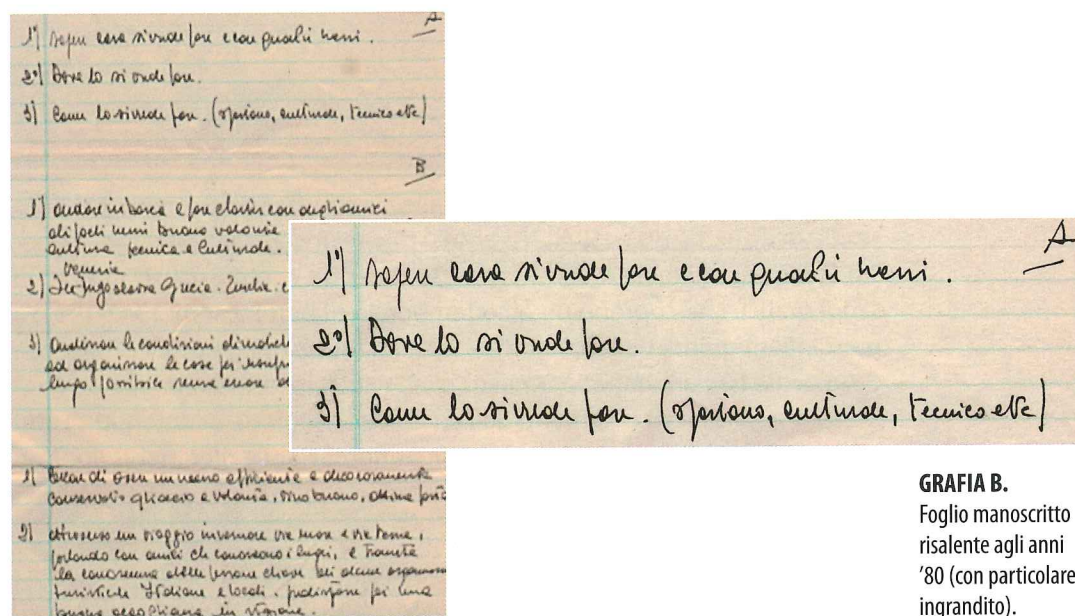 A
1°) sapere cosa si vuole fare e con quali mezzi.
2°) Dove lo si vuole fare.
3) Come lo si vuole fare. (sportivo, culturale, tecnico etc)
B
1°) andare in barca e fare charter con degli amici
buona volontà
cultura tecnica e culturale.
2) Jugoslavia Grecia. Turchia.
3) le condizioni
ed organizzare le cose per
lungo senza
1)
conservato ghiaccio a volontà, vino buono, ottima
2) attraverso un viaggio invernale via mare e via terra,
parlando con amici che conoscono i luoghi, e tramite
la conoscenza delle persone chiave di alcune
turistiche Italiane e locali. predisporre per una
buona accoglienza in stagione.
A
1°) sapere cosa si vuole fare e con quali mezzi.
2°) Dove lo si vuole fare.
3) Come lo si vuole fare. (sportivo, culturale, tecnico etc)
GRAFIA B.
Foglio manoscritto
risalente agli anni
'80 (con particolare
ingrandito).